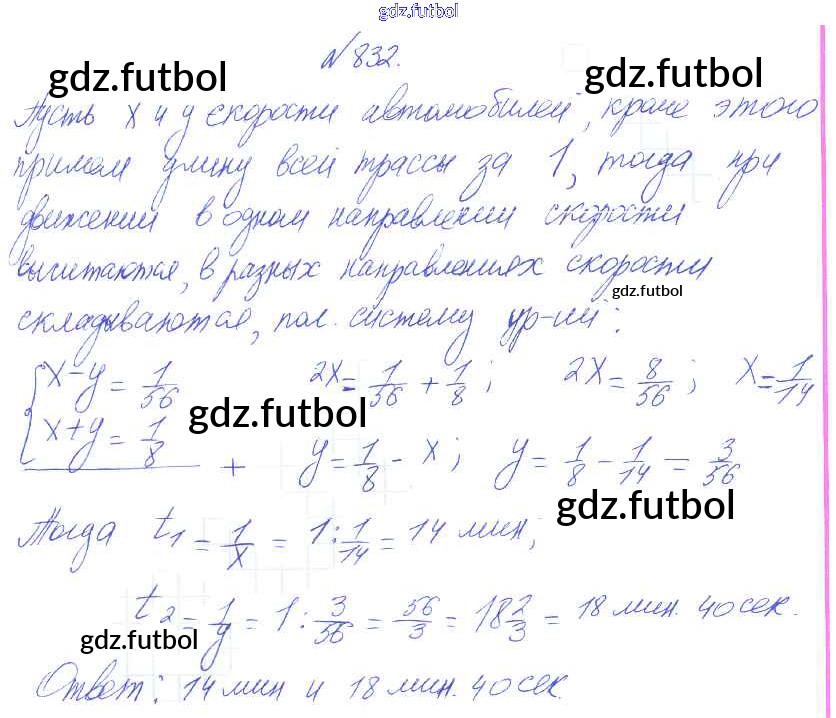 gdz.futbol
№832.
gdz.futbol gdz.futbol
Пусть x и y скорости автомобилей, кроме этого
примем длину всей трассы за 1, тогда при
движении в одном направлении скорости
вычитаются, в разных направлениях скорости
gdz.futbol
складываются, пол. систему ур-ий:
x-y=1/56 2x=1/56+1/8; 2x=8/56; x=1/14
gdz.futbol
x+y=1/8 + y=1/8-x; y=1/8-1/14=3/56
gdz.futbol
Тогда t1=1/x=1:1/14=14 мин;
t2=1/y=1:3/56=56/3=18 2/3=18 мин. 40 сек.
gdz.futbol
Ответ: 14 мин и 18 мин. 40 сек.